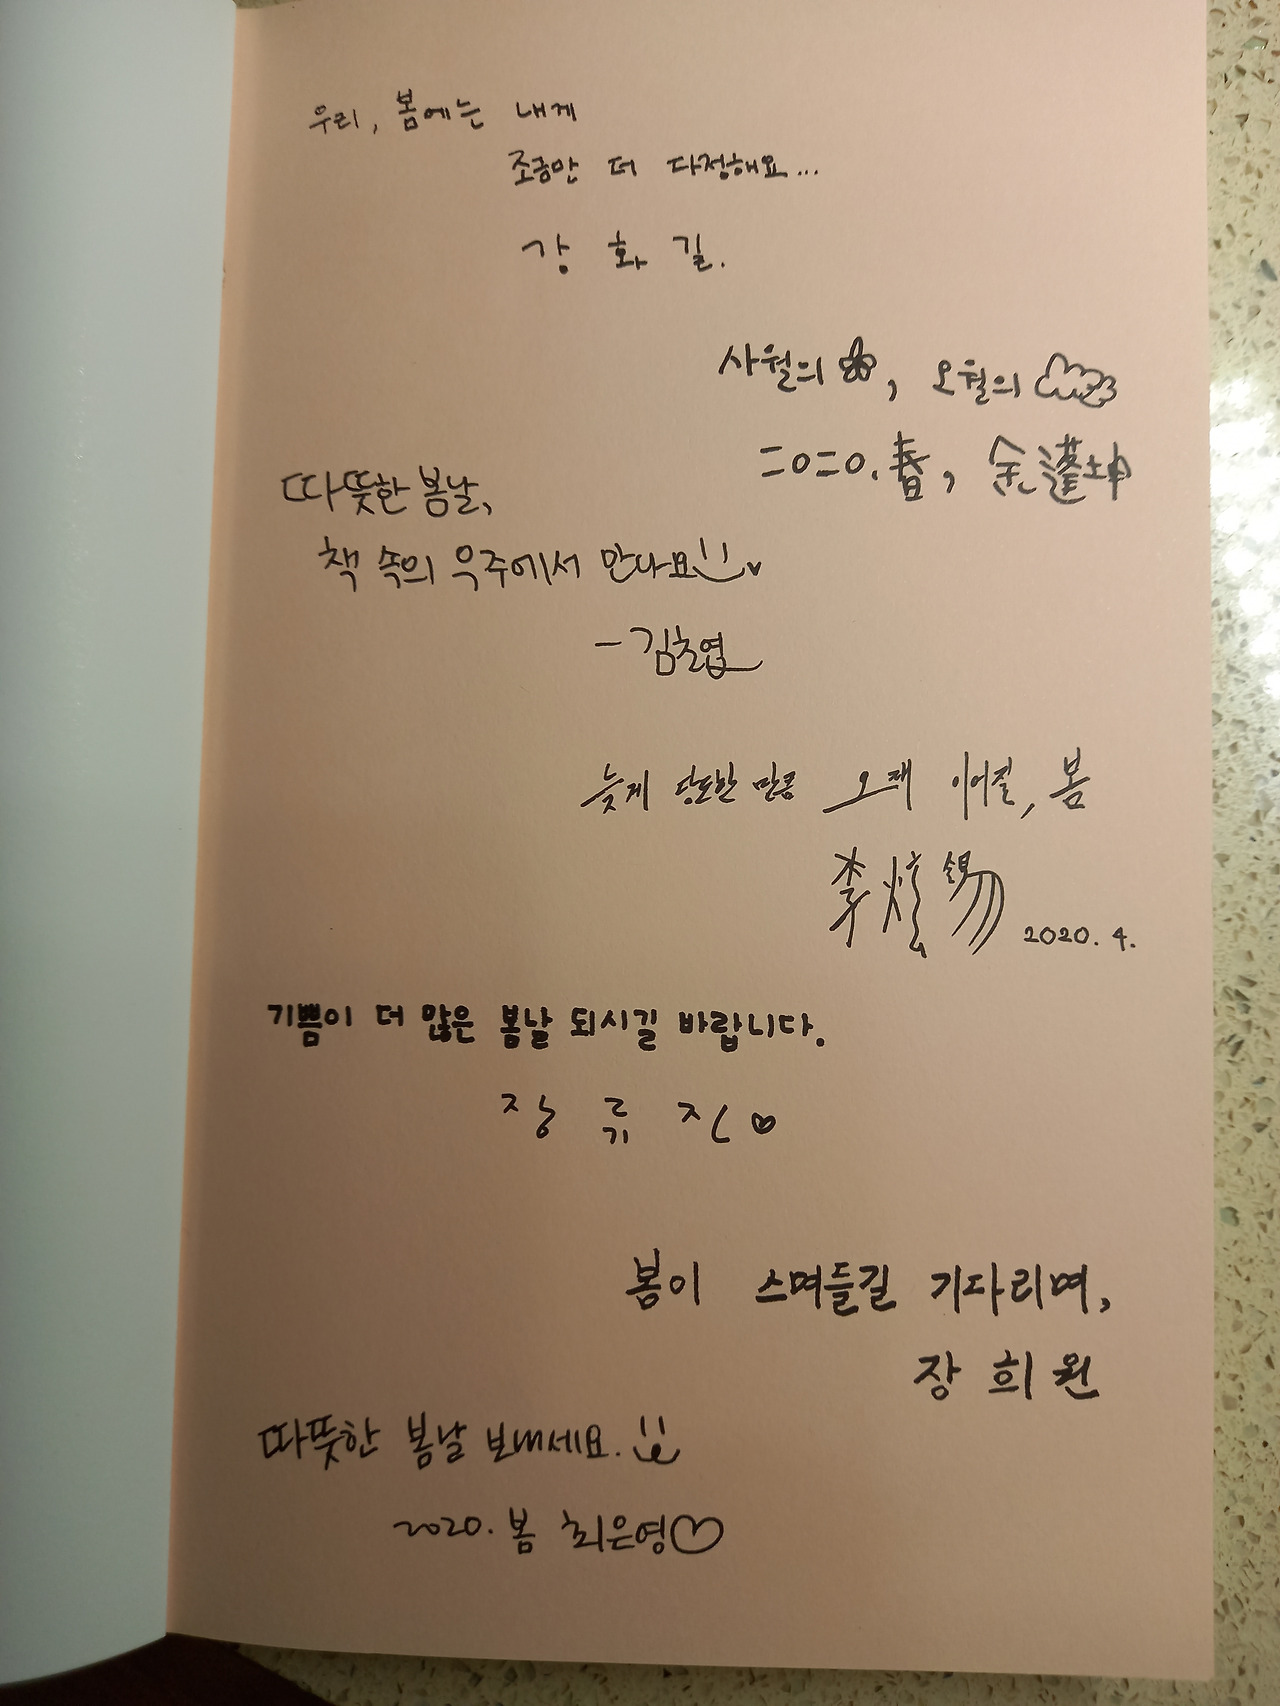 우리, 봄에는 내게
조금만 더 다정해요...
강 화 길.
사월의, 오월의
二0二0. 春, 金蓬坤
따뜻한 봄날,
책 속의 우주에서 만나요
- 김초엽
늦게 당도한 만큼 오래 이어질, 봄
李炫錫
2020. 4.
기쁨이 더 많은 봄날 되시길 바랍니다.
장 류 진
봄이 스며들길 기다리며,
장 희 원
따뜻한 봄날 보내세요.
2020. 봄 최은영